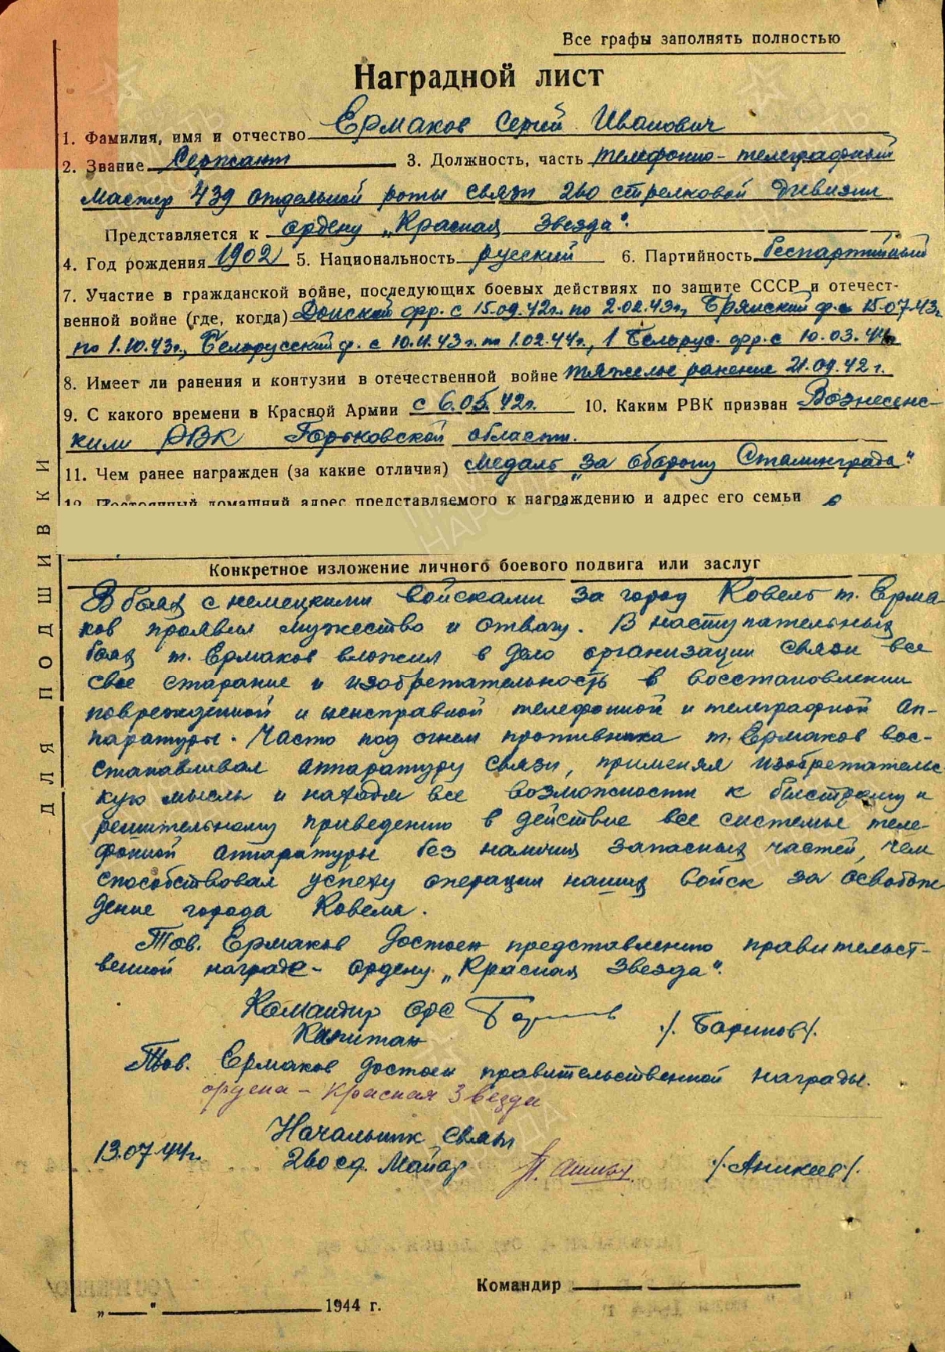 Все графы заполнять полностью
Наградной лист
1. Фамилия, имя и отчество Ермаков Сергей Иванович
2. Звание Сержант 3. Должность, часть телефонно-телеграфный
мастер 439 отдельной роты связи 260 стрелковой дивизии
Представляется к ордену „Красная Звезда".
4. Год рождения 1902 5. Национальность русский 6. Партийность беспартийный
7. Участие в гражданской войне, последующих боевых действиях по защите СССР и отечест-
венной войне (где, когда) Донской фр. с 15.09.42г. по 2.02.43г., Брянский ф. с 15.07.43г.
по 1.10.43г., Белорусский ф. с 10.11.43г. по 1.02.44г., 1 Белорус. фр. с 10.03.44г.
8. Имеет ли ранения и контузии в отечественной войне тяжелое ранение 21.09.42г.
9. С какого времени в Красной Армии с 6.05.42г. 10. Каким РВК призван Вознесенс-
ким РВК Горьковской области.
11. Чем ранее награжден (за какие отличия) медаль „За оборону Сталинграда".
12. Постоянный домашний адрес представляемого к награждению и адрес его семьи
Конкретное изложение личного боевого подвига или заслуг
В боях с немецкими войсками за город Ковель т. Ерма-
ков проявил мужество и отвагу. В наступательных
боях т. Ермаков вложил в дело организации связи все
свое старание и изобретательность в восстановлении
поврежденной и неисправной телефонной и телеграфной ап-
паратуры. Часто под огнем противника т. Ермаков вос-
станавливал аппаратуру связи, применял изобретательс-
кую мысль и находя все возможности к быстрому и
решительному приведению в действие все системы теле-
фонной аппаратуры без наличия запасных частей, чем
способствовал успеху операции наших войск за освобож-
дение города Ковеля.
Тов. Ермаков достоен представлению правительст-
венной награде - ордену „Красная Звезда".
Командир ОРС /Баринов/.
Капитан
Тов. Ермаков достоен правительственной награды
ордена - Красная Звезда
Начальник связи
13.07.44г. 260 сд. Майор /Аникеев/.
Командир
„ " 1944 г.
ДЛЯ ПОДШИВКИ